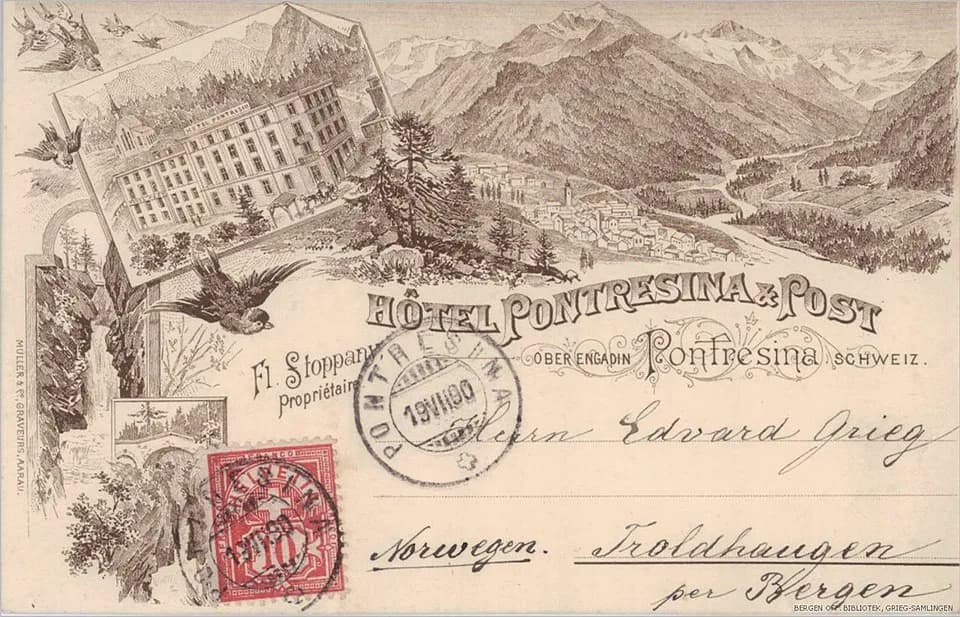 HÔTEL PONTRESINA
HÔTEL PONTRESINA & POST
Fl. Stoppany
Propriétaire
OBER ENGADIN Pontresina SCHWEIZ.
PONTRESINA
19 VII 90
Herrn Edvard Grieg
Norwegen. Troldhaugen
per Bergen
FRANCO
HELVETIA
10
MÜLLER & Co, GRAVEURS, AARAU.
BERGEN OFF. BIBLIOTEK, GRIEG-SAMLINGEN